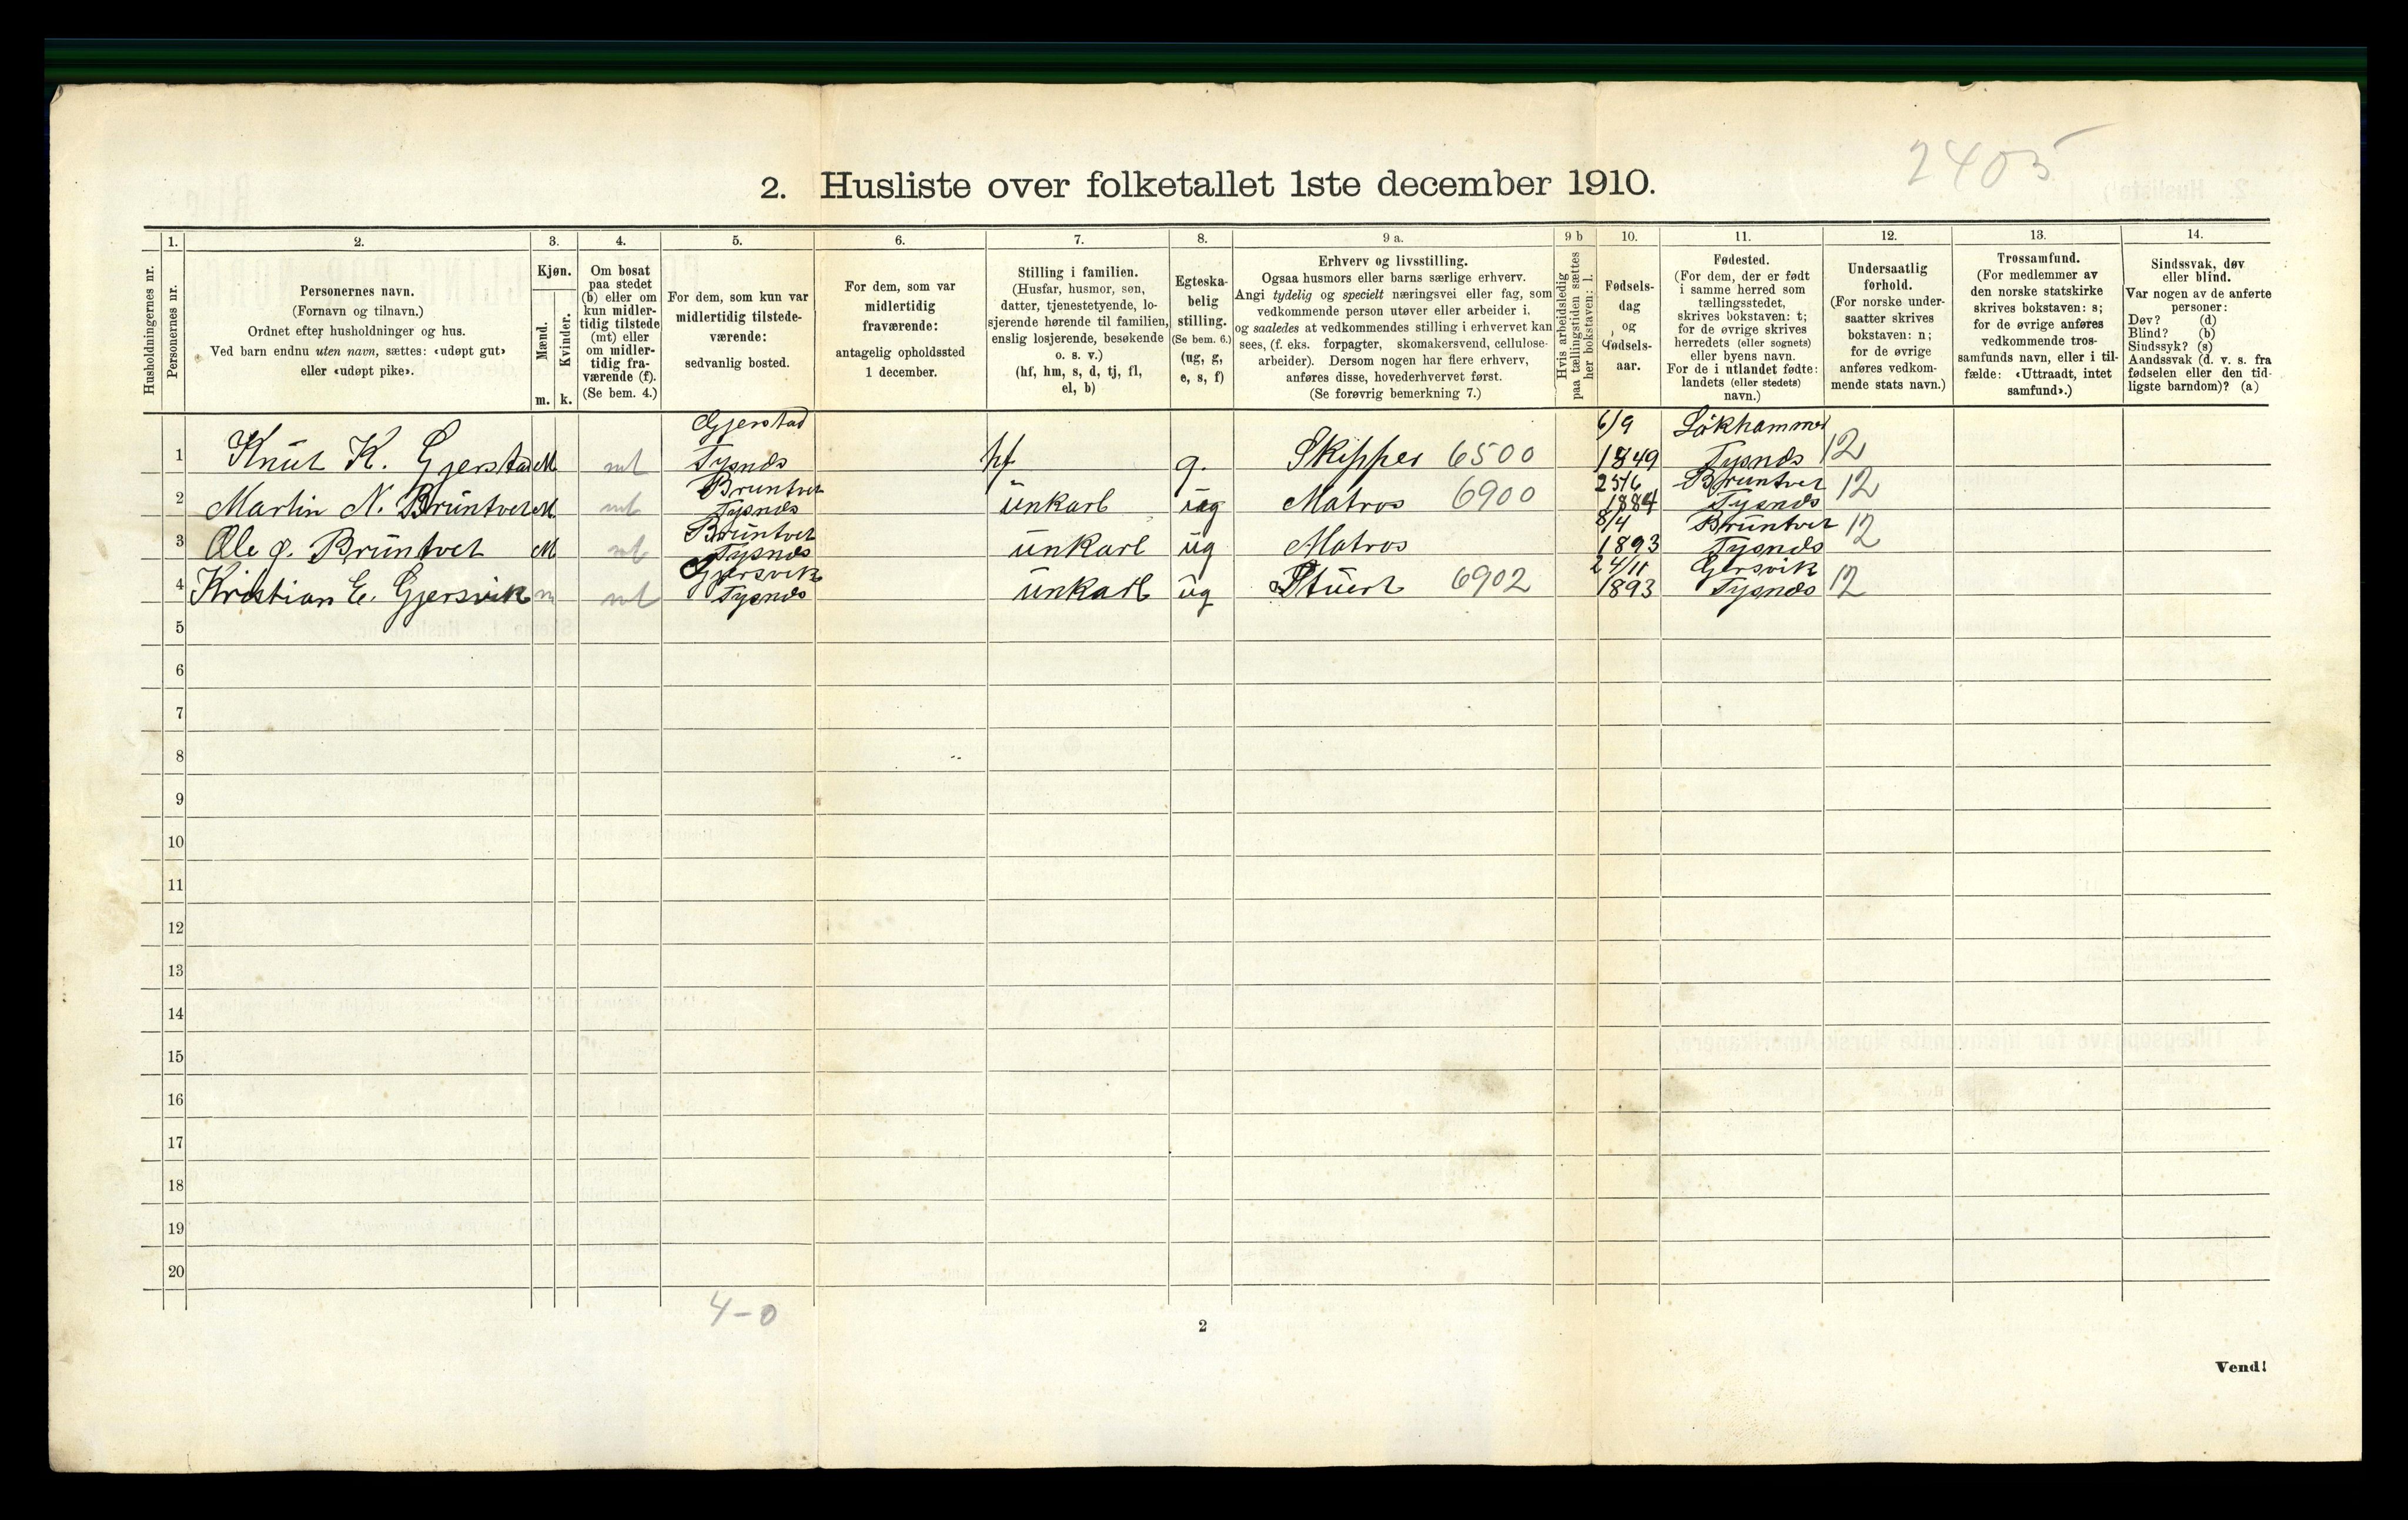 2405
2. Husliste over folketallet 1ste december 1910.
Husholdningernes nr.
1.
Personernes nr.
2.
Personernes navn.
(Fornavn og tilnavn.)
Ordnet efter husholdninger og hus.
Ved barn endnu uten navn, sættes: «udøpt gut»
eller «udøpt pike».
3.
Kjøn.
Mænd.
Kvinder.
m. k.
4.
Om bosat
paa stedet
(b) eller om
kun midler-
tidig tilstede
(mt) eller
om midler-
tidig fra-
værende (f).
(Se bem. 4.)
5.
For dem, som kun var
midlertidig tilstede-
værende:
sedvanlig bosted.
6.
For dem, som var
midlertidig
fraværende:
antagelig opholdssted
1 december.
7.
Stilling i familien.
(Husfar, husmor, søn,
datter, tjenestetyende, lo-
sjerende hørende til familien,
enslig losjerende, besøkende
o. s. v.)
(hf, hm, s, d, tj, fl,
el, b)
8.
Egteska-
belig
stilling.
(Se bem. 6.)
(ug, g,
e, s, f)
9 a.
Erhverv og livsstilling.
Ogsaa husmors eller barns særlige erhverv.
Angi tydelig og specielt næringsvei eller fag, som
vedkommende person utøver eller arbeider i,
og saaledes at vedkommendes stilling i erhvervet kan
sees, (f. eks. forpagter, skomakersvend, cellulose-
arbeider). Dersom nogen har flere erhverv,
anføres disse, hovederhvervet først.
(Se forøvrig bemerkning 7.)
9 b
Hvis arbeidsledig
paa tællingstiden sættes
her bokstaven: l.
10.
Fødsels-
dag
og
fødsels-
aar.
11.
Fødested.
(For dem, der er født
i samme herred som
tællingsstedet,
skrives bokstaven: t;
for de øvrige skrives
herredets (eller sognets)
eller byens navn.
For de i utlandet fødte:
landets (eller stedets)
navn.)
12.
Undersaatlig
forhold.
(For norske under-
saatter skrives
bokstaven: n;
for de øvrige
anføres vedkom-
mende stats navn.)
13.
Trossamfund.
(For medlemmer av
den norske statskirke
skrives bokstaven: s;
for de øvrige anføres
vedkommende tros-
samfunds navn, eller i til-
fælde: «Uttraadt, intet
samfund».)
14.
Sindssvak, døv
eller blind.
Var nogen av de anførte
personer:
Døv? (d)
Blind? (b)
Sindssyk? (s)
Aandssvak (d. v. s. fra
fødselen eller den tid-
ligste barndom)? (a)
Gjerstad 6/9 Løkhammer
1 Knut K. Gjerstad M mt Tysnes hf g. Skipper 6500 1849 Tysnes 12
Bruntvet 25/6 Bruntvet
2 Martin N. Bruntvet M mt Tysnes ünkarl üg Matros 6900 1884 Tysnes 12
Bruntvet 8/4 Bruntvet
3 Ole J. Bruntvet M mt Tysnes ünkarl üg Matros 1893 Tysnes 12
Gjersvik 24/11 Gersvik
4 Kristian E. Gjersvik m mt Tysnes ünkarl üg Stüert 6902 1893 Tysnes 12
5
6
7
8
9
10
11
12
13
14
15
16
17
18
19
20
4-0
2
Vend!